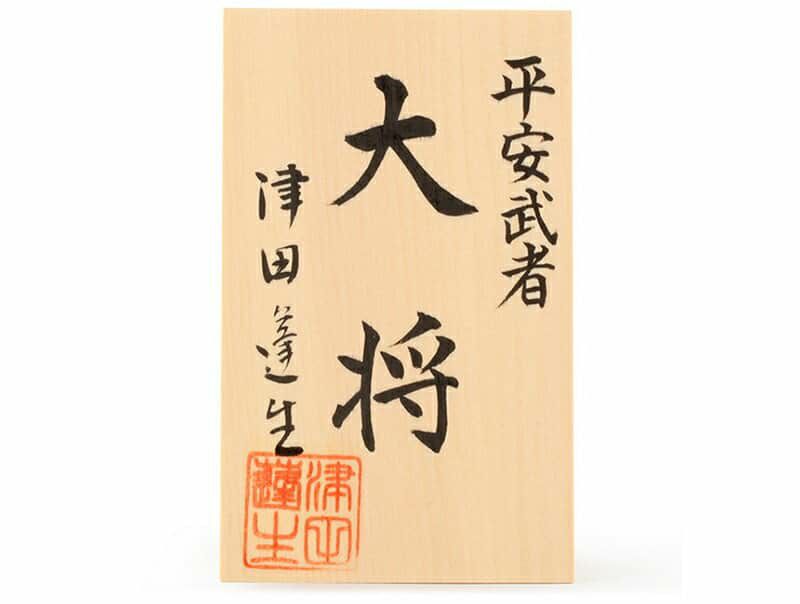 平安武者
大将
津田蓬生
津田
蓬生